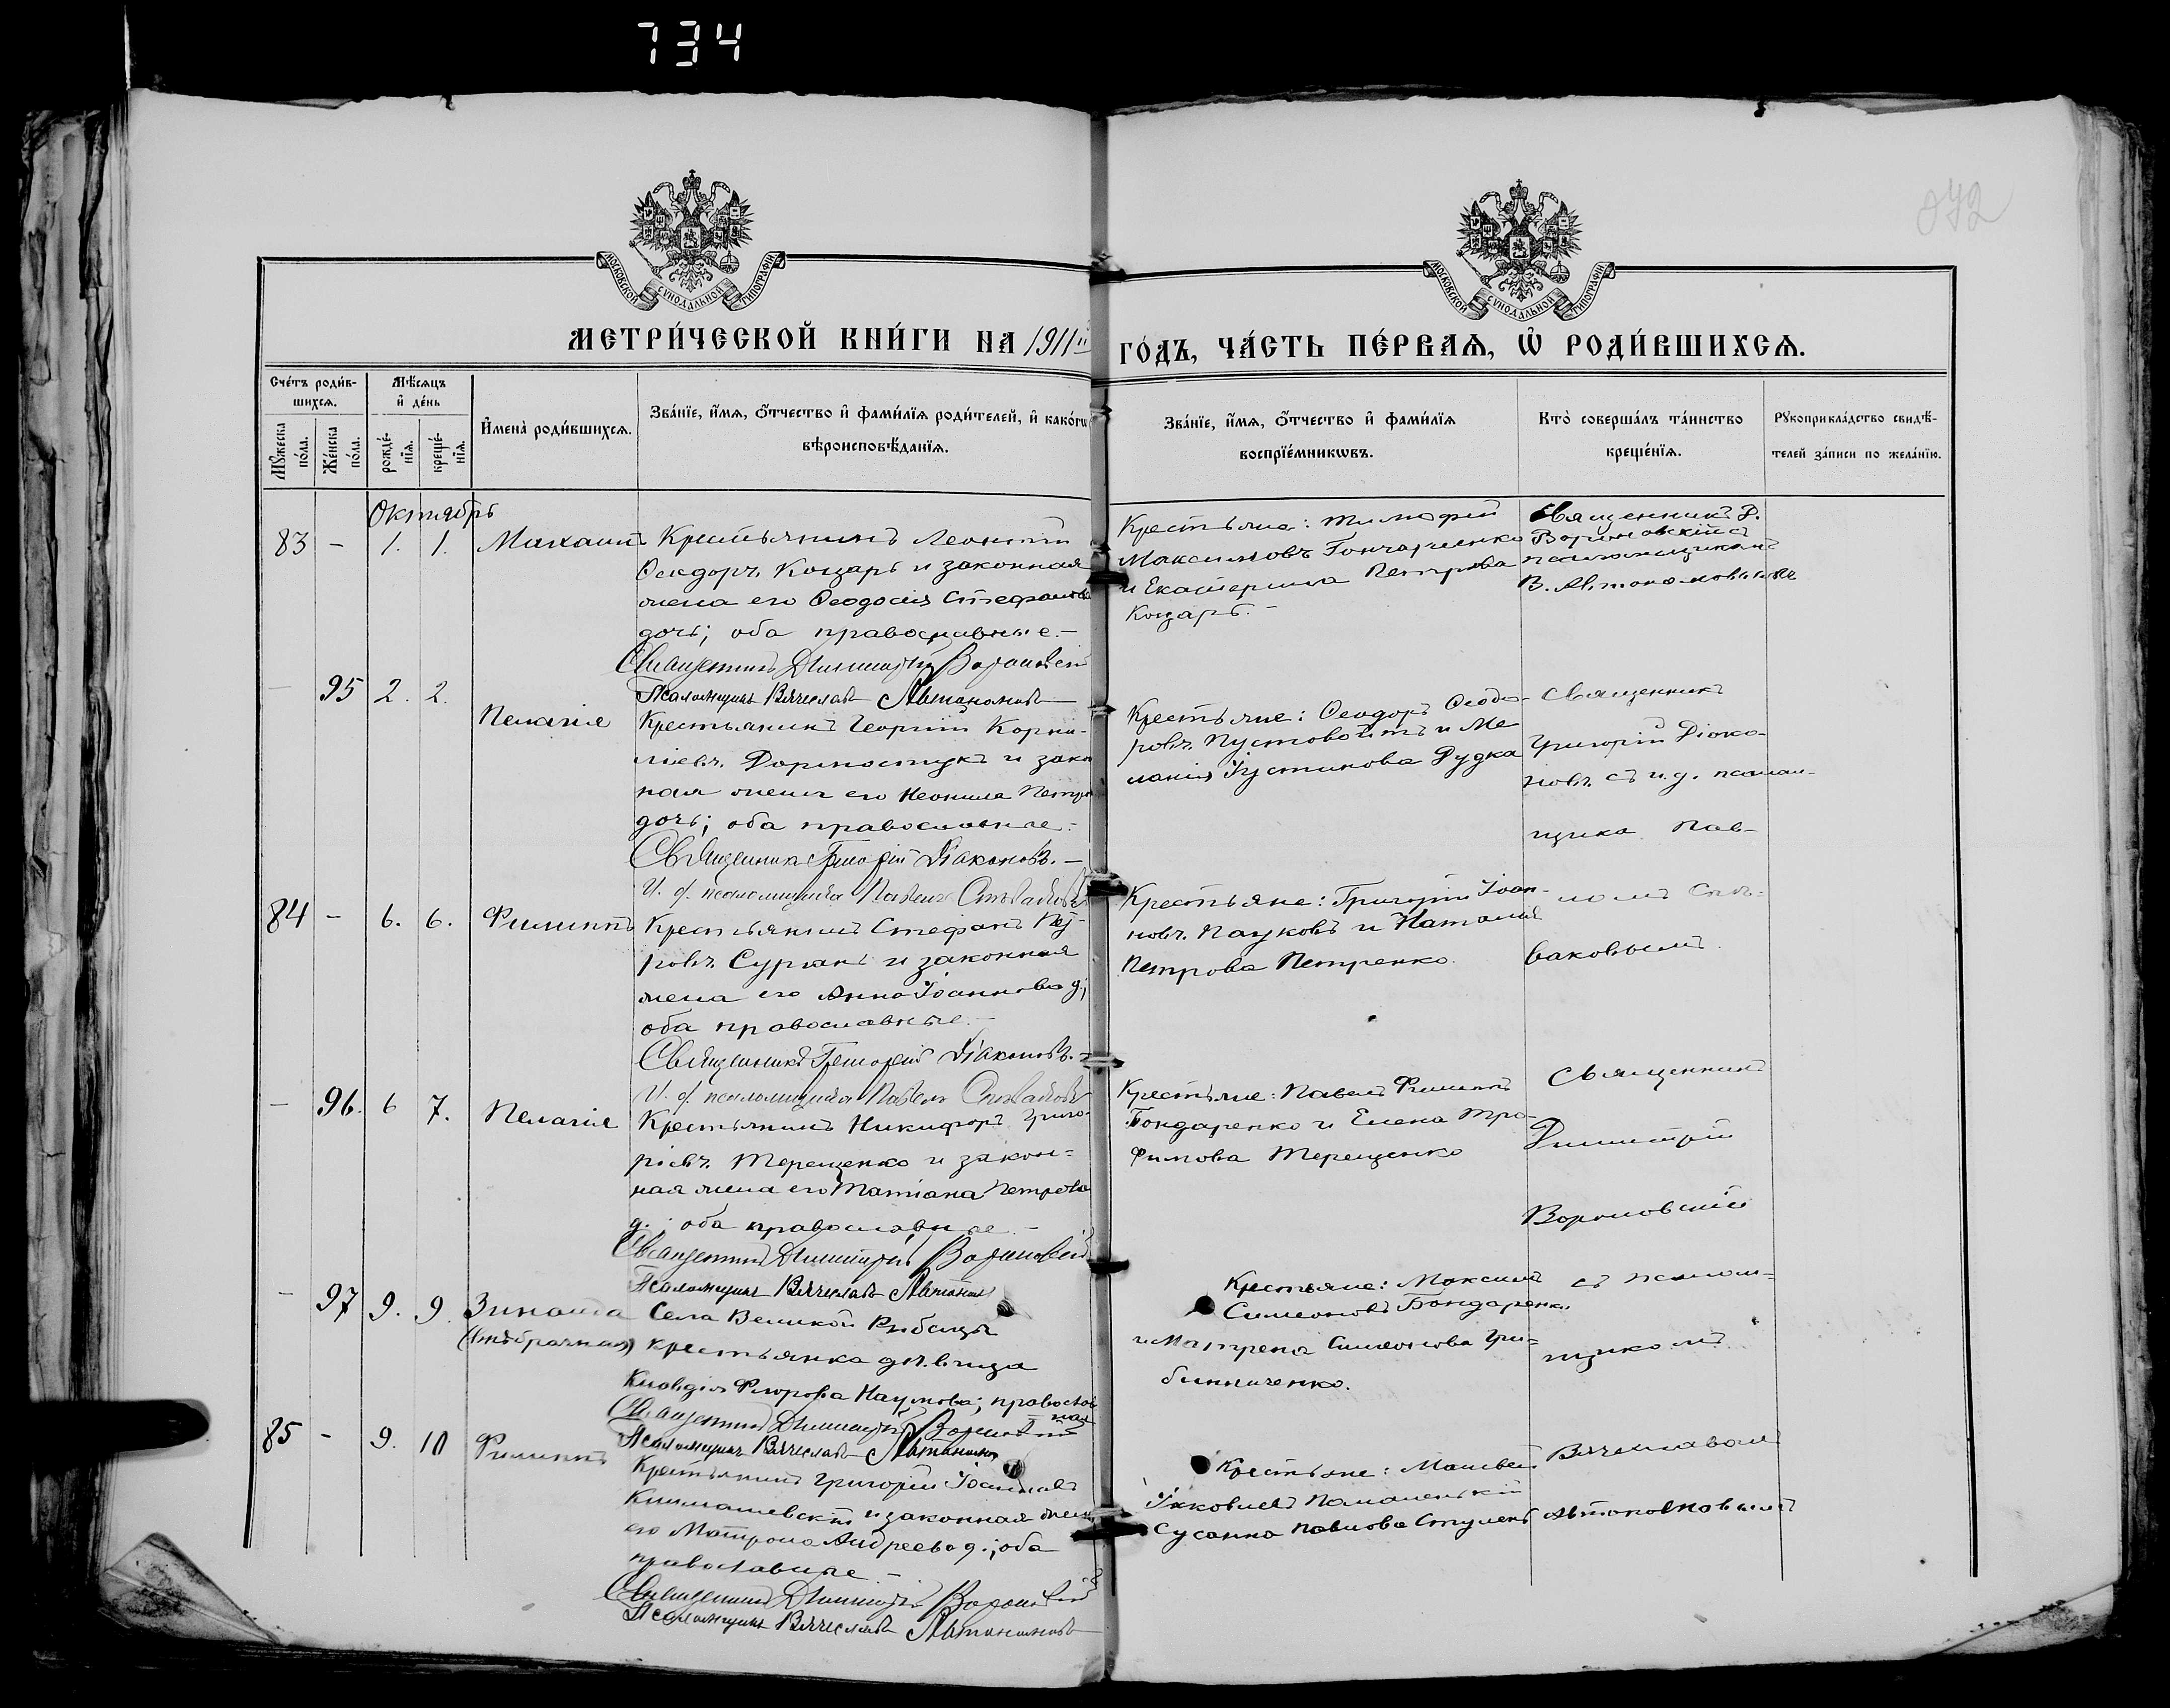 734
072
МОСКОВСКОЙ СѴНОДАЛЬНОЙ ТИПОГРАФІИ
МОСКОВСКОЙ СѴНОДАЛЬНОЙ ТИПОГРАФІИ
МЕТРИ́ЧЕСКОЙ КНИ́ГИ НА 1911й ГО́ДЪ, ЧА́СТЬ ПЕ́РВАѦ, Ѡ҆ РОДИ́ВШИХСѦ.
Сче́тъ роди́в-
шихсѧ.
Мꙋ́жеска по́ла.
Же́нска по́ла.
Мѣ́сѧцъ
и҆ де́нь
рожде́-
нїѧ.
креще́-
нїѧ.
И҆мена̀ роди́вшихсѧ.
Зва́нїе, и҆́мѧ, ѻ҆́тчество и҆ фами́лїѧ роди́телей, и҆ како́гѡ
вѣроисповѣ́данїѧ.
Зва́нїе, и҆́мѧ, ѻ҆́тчество и҆ фами́лїѧ
воспрїе́мникѡвъ.
Кто̀ соверша́лъ та́инство
креще́нїѧ.
Рꙋкоприкла́дство свидѣ́-
телей за́писи по жела́нїю.
Октябрь
83 - 1. 1. Михаилъ
Крестьянинъ Леонтій
Ѳеодоръ Коцарь и законная
жена его Ѳеодосія Стефанова
дочь; оба православные.-
Священникъ Димитрій Вороновскій
Псаломщикъ Вячеславъ Автономовъ
Крестьяне: Тимофей
Максимовъ Гончаренко
и Екатерина Петрова
Коцарь.-
Священникъ Д.
Вороновскій съ
псаломщикомъ
В. Автономовымъ
- 95 2. 2. Пелагія
Крестьянинъ Георгій Корни-
ліевъ Дорностукъ и закон
ная жена его Неонила Петро
дочь; оба православные.-
Священникъ Григорій Діаконовъ.-
И. д. псаломщика Павелъ Спѣваковъ
Крестьяне: Ѳеодоръ Ѳеодо-
ровъ Пустовойтъ и Ме
ланія Іустинова Рудка
Священникъ
Григорій Діоко-
новъ съ и. д. псалом-
щика Пав-
ломъ Спѣ-
ваковымъ.
84 - 6. 6. Филиппъ
Крестьянинъ Стефанъ Пет-
ровъ Сурганъ и законная
жена его Анна Іоаннова д;
оба православные.-
Священникъ Григорій Діаконовъ.-
И. д. псаломщика Павелъ Спѣваковъ
Крестьяне: Григорій Іоан-
новъ Пауковъ и Наталія
Петрова Петренко.
- 96. 6 7. Пелагія
Крестьянинъ Никифоръ Григо-
ріевъ Терещенко и закон-
ная жена его Татіана Петрова
д.; оба православные.-
Священникъ Димитрій Вороновскій
Псаломщикъ Вячеславъ Автономовъ
Крестьяне: Павелъ Филиппъ
Бондаренко и Елена Тро-
фимова Терещенко
Священникъ
Димитрій
Вороновскій
съ псалом-
щикомъ
Вячеславомъ
Автономовымъ
- 97 9. 9. Зинаида
(Внѣбрачная)
Села Великой Рыбицы
крестьянка дѣвица
Клавдія Флорова Наумова; православ
ная
Священникъ Димитрій Вороновскій
Псаломщикъ Вячеславъ Автономовъ
Крестьяне: Максимъ
Симеоновъ Бондаренко
и Матрена Симеонова Гри-
биниченко.
85 - 9. 10 Филиппъ
Крестьянинъ Григорій Іоанновъ
Климашевскій и законная жена
его Матрона Андреева д.; оба
православные.-
Священникъ Димитрій Вороновскій
Псаломщикъ Вячеславъ Автономовъ
Крестьяне: Матвей
Іаковлевъ Паманенькій
Сусанна Павлова Ступень